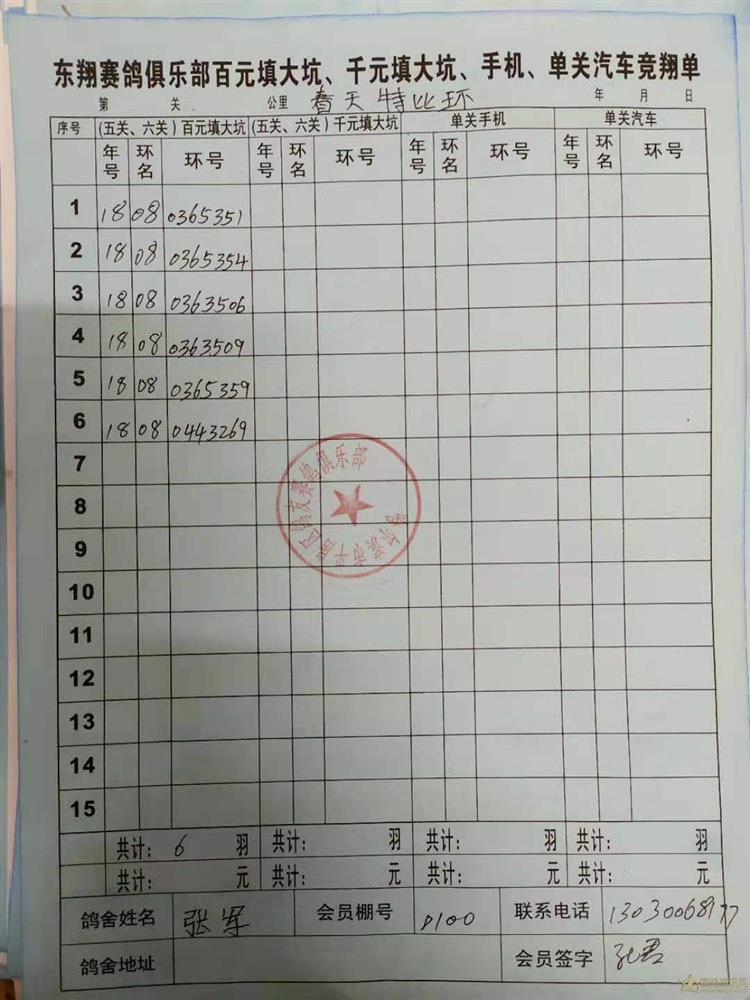 东翔赛鸽俱乐部百元填大坑、千元填大坑、手机、单关汽车竞翔单
第 关 公里 春天特比环 年 月 日
序号 (五关、六关)百元填大坑 (五关、六关)千元填大坑 单关手机 单关汽车
年号 环名 环号 年号 环名 环号 年号 环名 环号 年号 环名 环号
1 18 08 0365351
2 18 08 0365354
3 18 08 0363506
4 18 08 0363509
5 18 08 0365359
6 18 08 0443269
7
8
9
10
11
12
13
14
15
共计: 6 羽 共计: 羽 共计: 羽 共计: 羽
共计: 元 共计: 元 共计: 元 共计: 元
鸽舍姓名 张军 会员棚号 0100 联系电话 13030068177
鸽舍地址 会员签字
哈尔滨市平房区鸽友赛鸽俱乐部